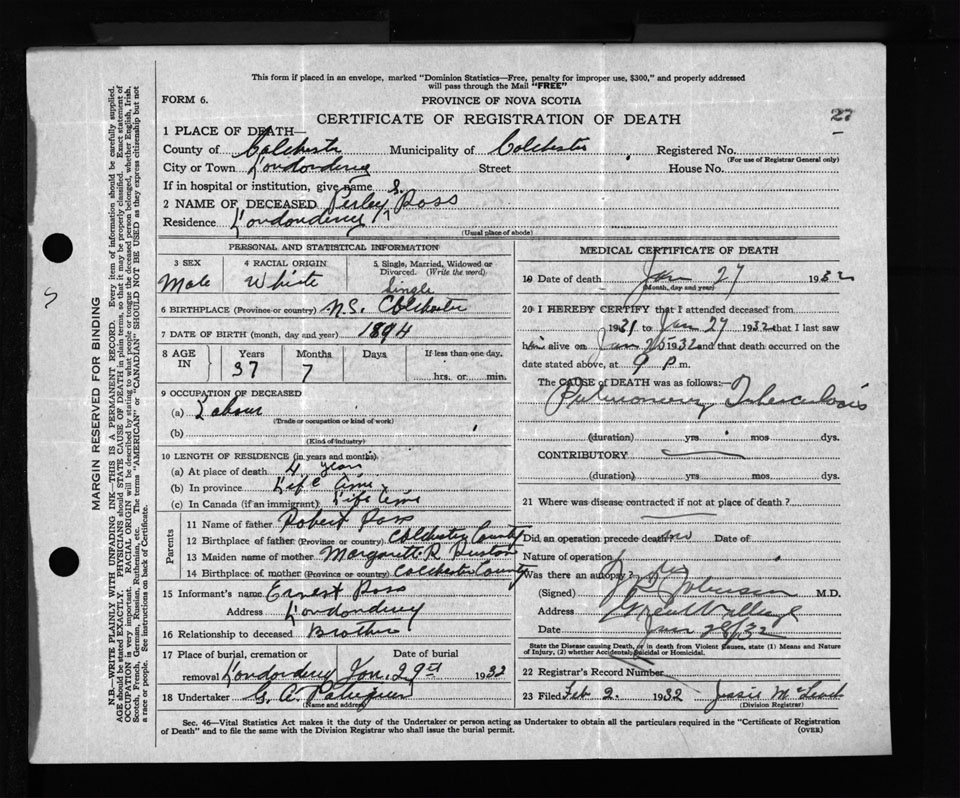 This form if placed in an envelope, marked "Dominion Statistics—Free, penalty for improper use, $300," and properly addressed
will pass through the Mail "FREE"
FORM 6.
PROVINCE OF NOVA SCOTIA
27
CERTIFICATE OF REGISTRATION OF DEATH
1 PLACE OF DEATH—
County of Colchester Municipality of Colchester Registered No.
(For use of Registrar General only)
City or Town Londonderry Street House No.
If in hospital or institution, give name
2 NAME OF DECEASED Perley S. Ross
Residence Londonderry
(Usual place of abode)
PERSONAL AND STATISTICAL INFORMATION
3 SEX 4 RACIAL ORIGIN 5 Single, Married, Widowed or Divorced. (Write the word)
Male White Single
6 BIRTHPLACE (Province or country) N.S. Colchester
7 DATE OF BIRTH (month, day and year) 1894
8 AGE IN Years Months Days If less than one day.
37 7 hrs. or min.
9 OCCUPATION OF DECEASED
(a) Labour
(Trade or occupation or kind of work)
(b)
(Kind of industry)
10 LENGTH OF RESIDENCE (in years and months).
(a) At place of death 4 years
(b) In province Life time
(c) In Canada (if an immigrant) Life time
Parents
11 Name of father Robert Ross
12 Birthplace of father (Province or country) Colchester County
13 Maiden name of mother Margarett R
14 Birthplace of mother (Province or country) Colchester County
15 Informant's name Ernest Ross
Address Londonderry
16 Relationship to deceased Brother
17 Place of burial, cremation or removal Date of burial
Londonderry Jan. 29th 1932
18 Undertaker G. A.
(Name and address)
MEDICAL CERTIFICATE OF DEATH
19 Date of death Jan 27 1932
(Month, day and year)
20 I HEREBY CERTIFY that I attended deceased from
1931 to Jan 27 1932 that I last saw
him alive on Jan 25 1932 and that death occurred on the
date stated above, at 9 P. m.
The CAUSE of DEATH was as follows:
Pulmonary Tuberculosis
(duration) yrs mos dys.
CONTRIBUTORY
(duration) yrs mos dys.
21 Where was disease contracted if not at place of death?
Did an operation precede death? No Date of
Nature of operation
Was there an autopsy?
(Signed) Johnson M.D.
Address Great Village
Date Jan 28/32
State the Disease causing Death, or in death from Violent Causes, state (1) Means and Nature
of Injury, (2) whether Accidental, Suicidal or Homicidal.
22 Registrar's Record Number
23 Filed Feb 2. 1932 Jessie McLeod
(Division Registrar)
Sec. 46—Vital Statistics Act makes it the duty of the Undertaker or person acting as Undertaker to obtain all the particulars required in the "Certificate of Registration
of Death" and to file the same with the Division Registrar who shall issue the burial permit.
(OVER)
MARGIN RESERVED FOR BINDING
N.B.—WRITE PLAINLY WITH UNFADING INK—THIS IS A PERMANENT RECORD. Every item of information should be carefully supplied.
AGE should be stated EXACTLY. PHYSICIANS should STATE CAUSE OF DEATH in plain terms, so that it may be properly classified. Exact statement of
OCCUPATION is very important. RACIAL ORIGIN will be described by stating to what people or tongue the deceased person belonged, whether English, Irish,
Scotch, French, German, Russian, Ruthenian, etc. The terms "AMERICAN" or "CANADIAN" SHOULD NOT BE USED as they express citizenship but not
a race or people. See instructions on back of Certificate.